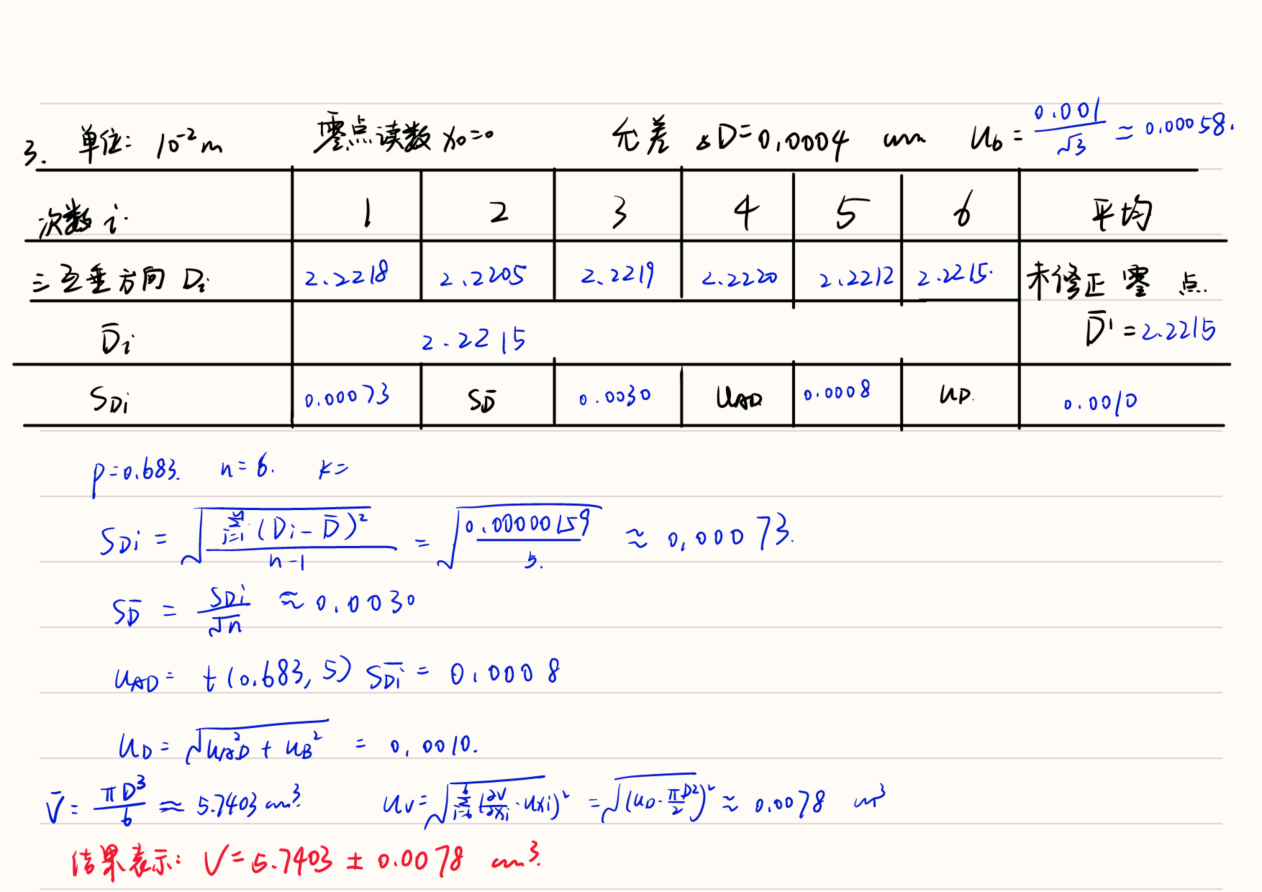 3. 单位: 10⁻²m 零点读数 x₀=0 允差 ΔD=0.0004 cm U_b = 0.001/√3 ≈ 0.00058.
次数 i. 1 2 3 4 5 6 平均
三互垂方向 Di 2.2218 2.2205 2.2219 2.2220 2.2212 2.2215. 未修正零点.
D̄i 2.2215 D̄' = 2.2215
S_Di 0.00073 S_D̄ 0.0030 U_AD 0.0008 U_D. 0.0010
P=0.683. n=6. K=
S_Di = √(Σ_{i=1}(Di-D̄)²/(n-1)) = √(0.00000159/5.) ≈ 0.00073.
S_D̄ = S_Di/√n ≈ 0.0030
U_AD = t(0.683, 5) S_D̄i = 0.0008
U_D = √(U_AD² + U_B²) = 0.0010.
V̄ = πD³/6 ≈ 5.7403 cm³. U_V = √(Σ(∂V/∂xi · U_xi)²) = √((U_D · πD²/2)²) ≈ 0.0078 cm³
结果表示: V = 5.7403 ± 0.0078 cm³.